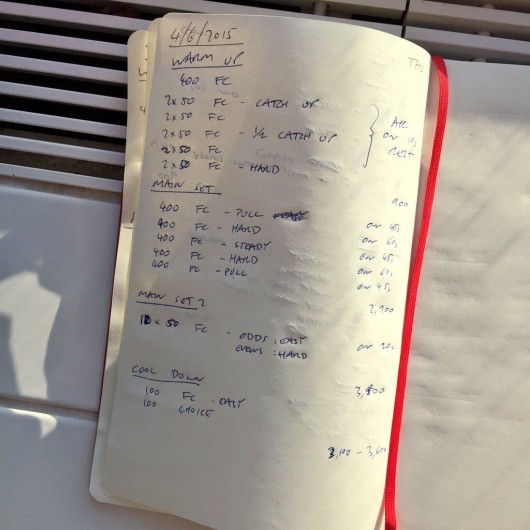 4/6/2015
WARM UP
400 FC
2x50 FC - CATCH UP
2x50 FC
2x50 FC - 1/2 CATCH UP
2x50 FC
2x50 FC - HARD
ALL
ON 10s
REST
MAIN SET
900
400 FC - PULL
400 FC - HARD on 45s
400 FC - STEADY on 60s
400 FC - HARD on 45s
400 FC - PULL on 60s
on 45s
MAIN SET 2
2,900
10 x 50 FC - ODDS: EASY
EVENS: HARD on 20s
COOL DOWN
100 FC - EASY
100 CHOICE
3,100 - 3,600